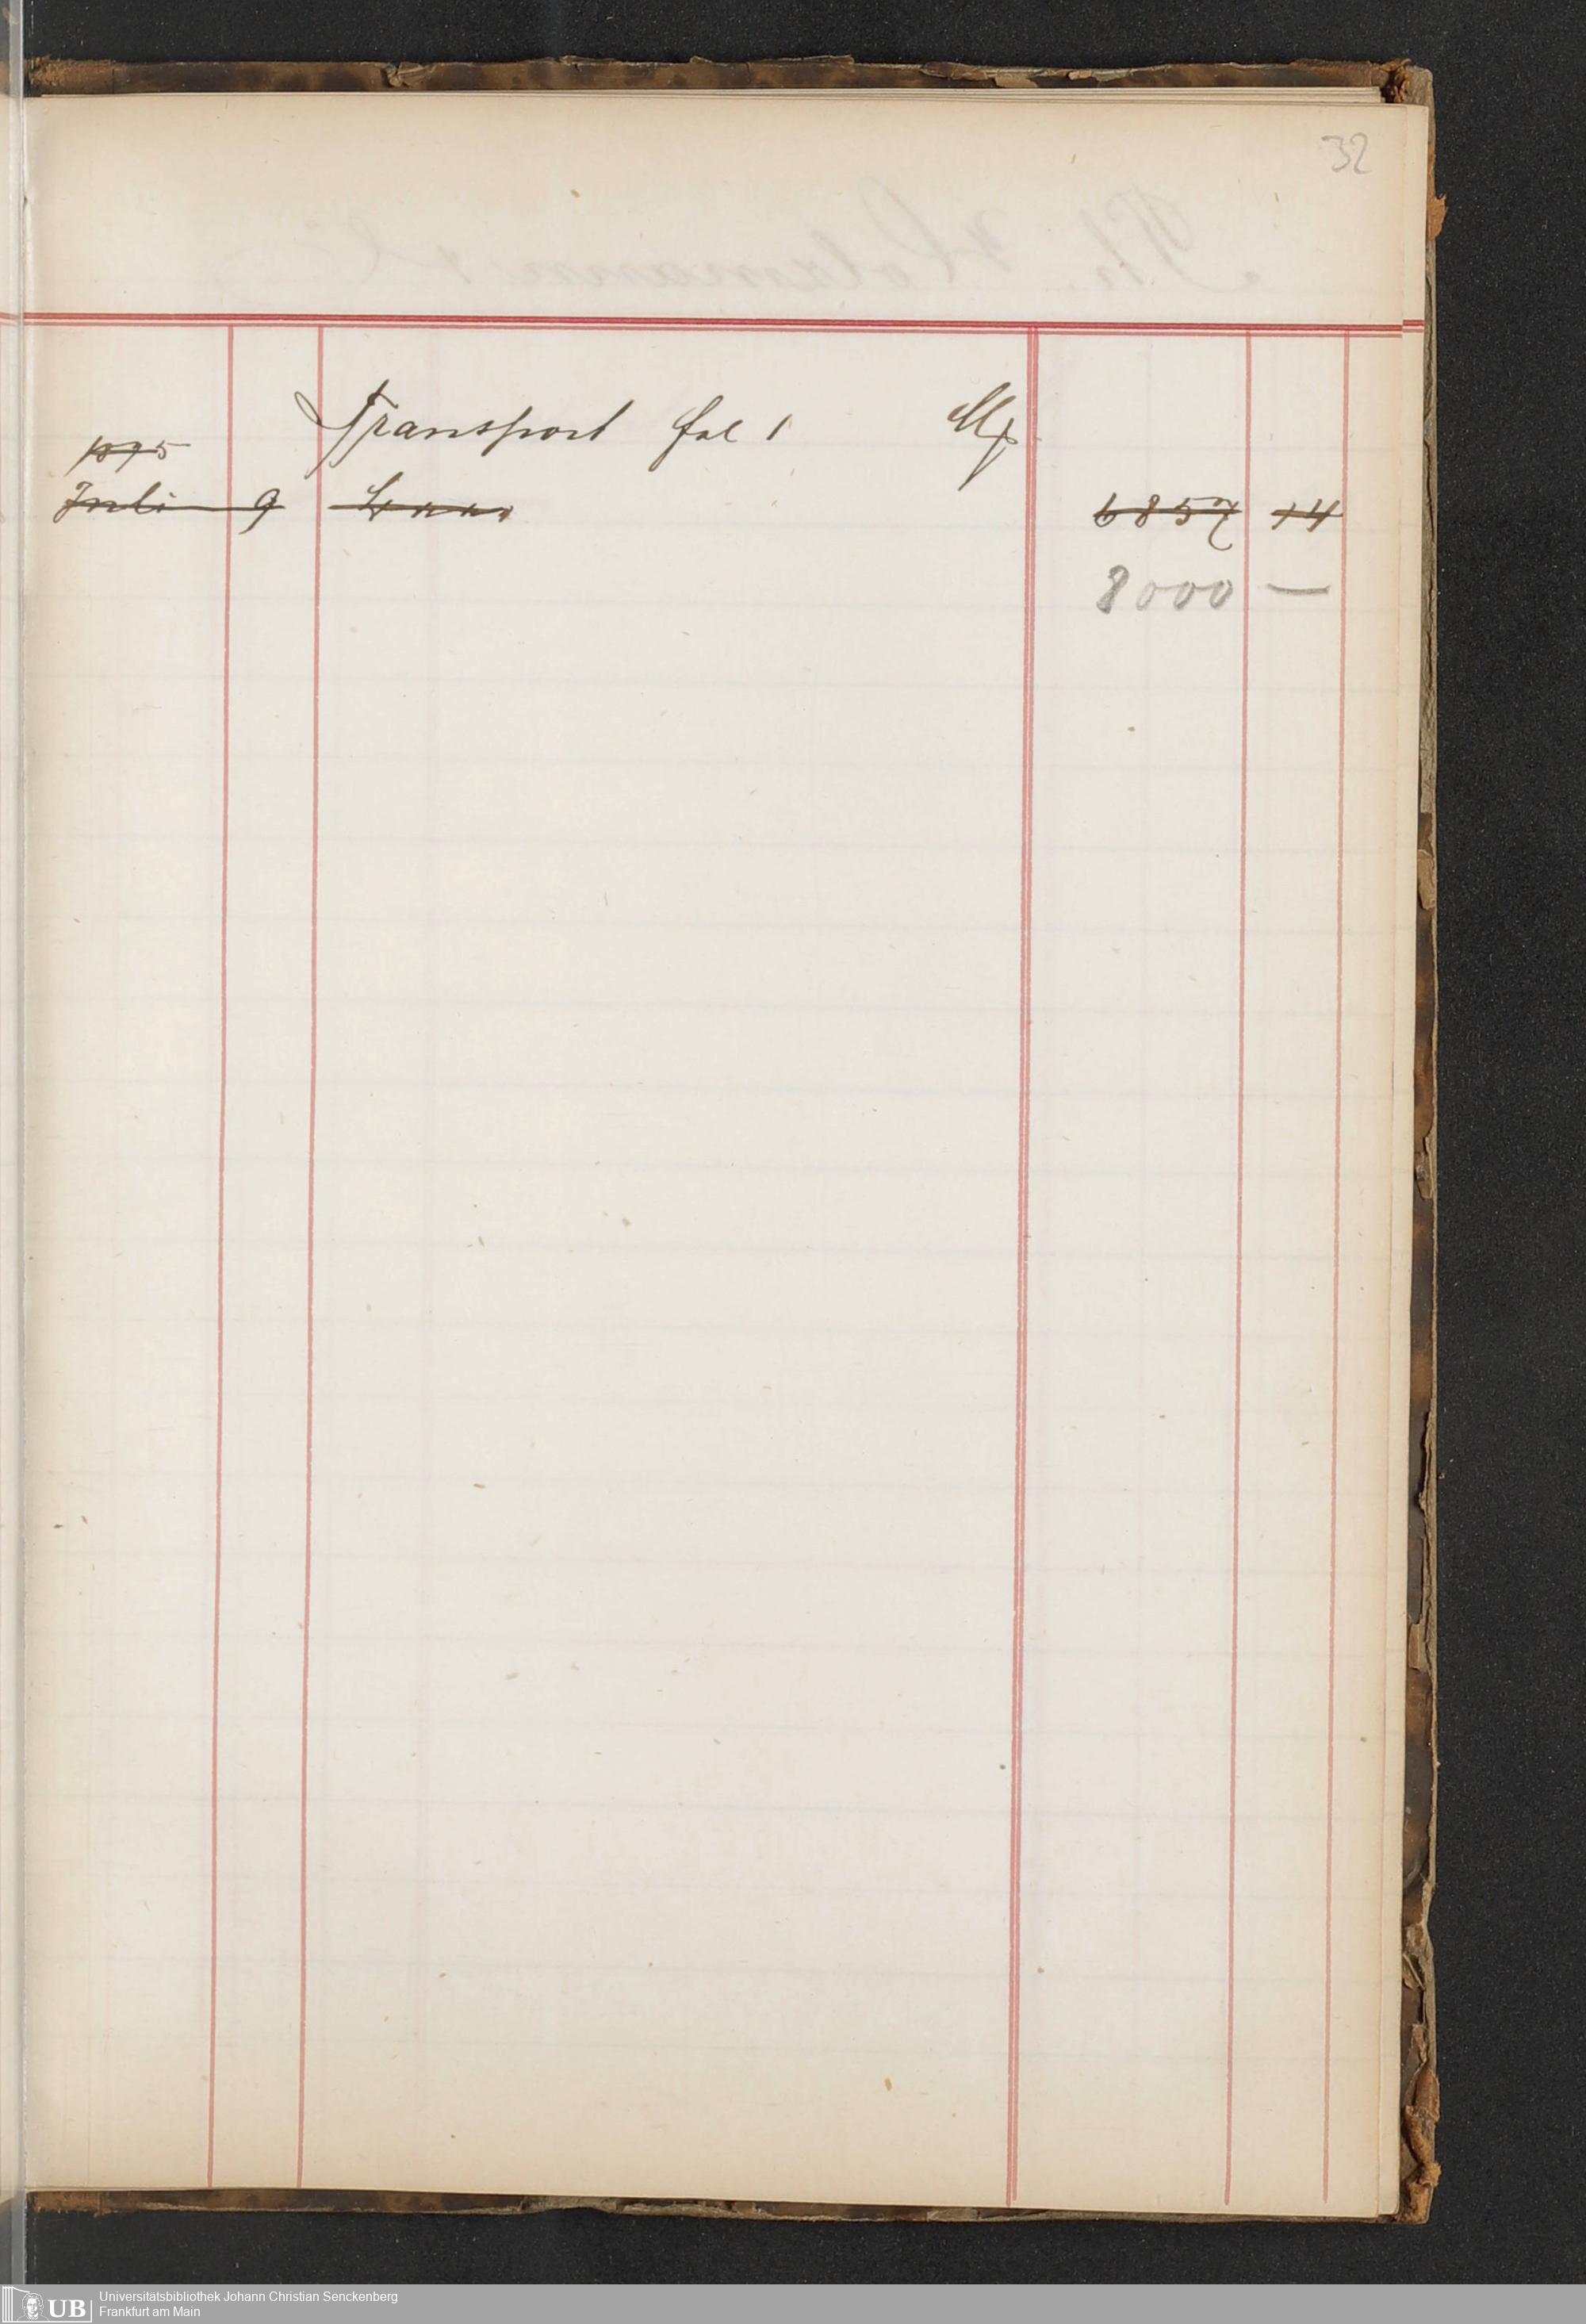 32
Transport fol 1 M
1895
Juli 9 6857 14
8000 —
UB Universitätsbibliothek Johann Christian Senckenberg
Frankfurt am Main